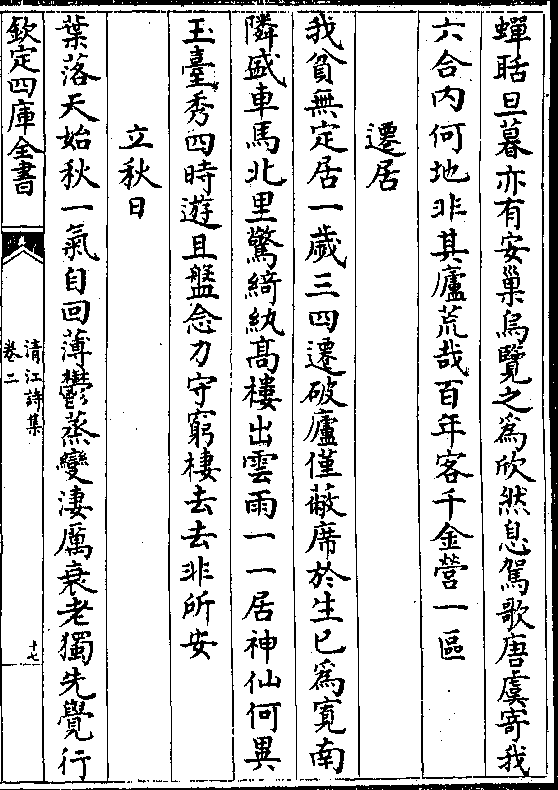 蟬聒旦暮亦有安巢烏覽之為欣然息駕歌唐虞寄我
六合内何地非其廬荒哉百年客千金營一區
遷居
我貧無定居一歲三四遷破廬僅蔽席於生已為寛南
隣盛車馬北里驚綺紈髙樓出雲雨一一居神仙何異
玉臺秀四時遊且盤念力守窮棲去去非所安
立秋日
葉落天始秋一氣自回薄鬱蒸變淒厲衰老獨先覺行
欽定四庫全書
清江詩集
卷二
十七